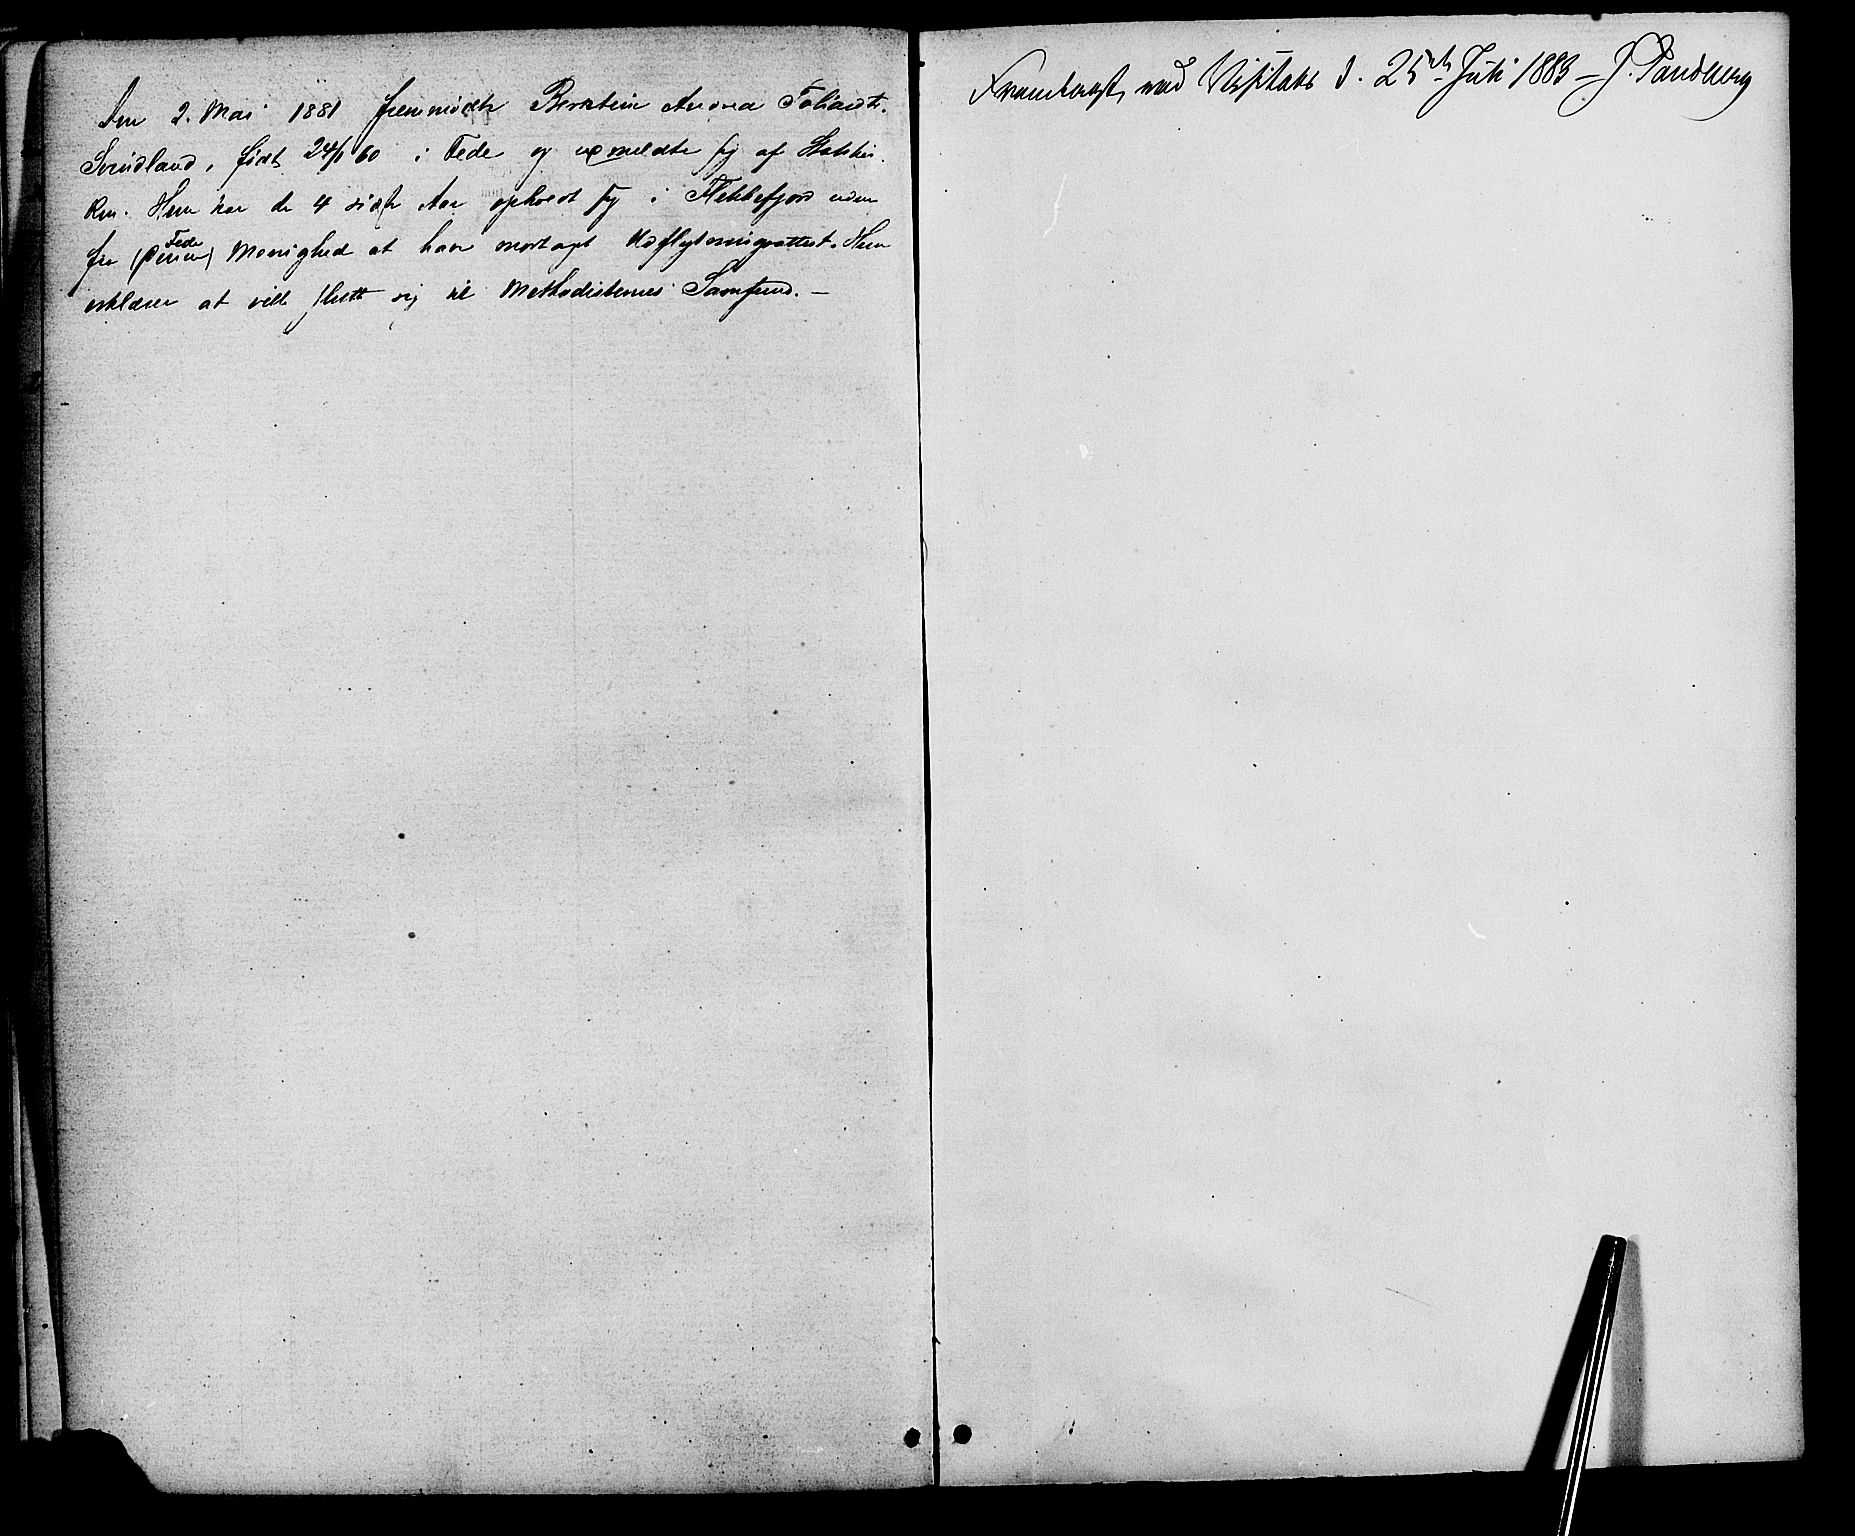 Den 2. Mai 1881 fremmødte Berntine Andrea Tobiasdt.
Svindland, født 24/1 60 i Fede og udmeldte sig af Statskir-
ken. Hun har de 4 sidste Aar opholdt sig i Flekkefjord uden
fra Fede Menighed at have modtaget Udflytningsattest. Hun
erklærer at ville slutte sig til Methodisternes Samfund. —
Fremlagt ved Visitats d. 25de Juli 1883 — J. Sandberg